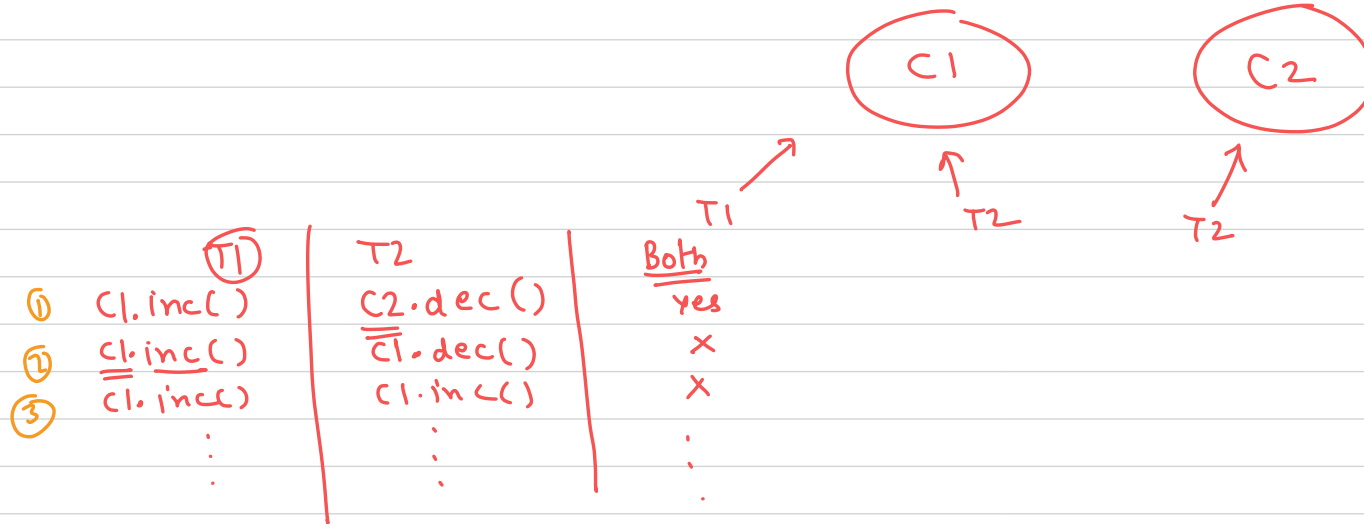 C1 C2
T1 T2 T2
T1 T2 Both
① C1.inc() C2.dec() yes
② C1.inc() C1.dec() x
③ C1.inc() C1.inc() x